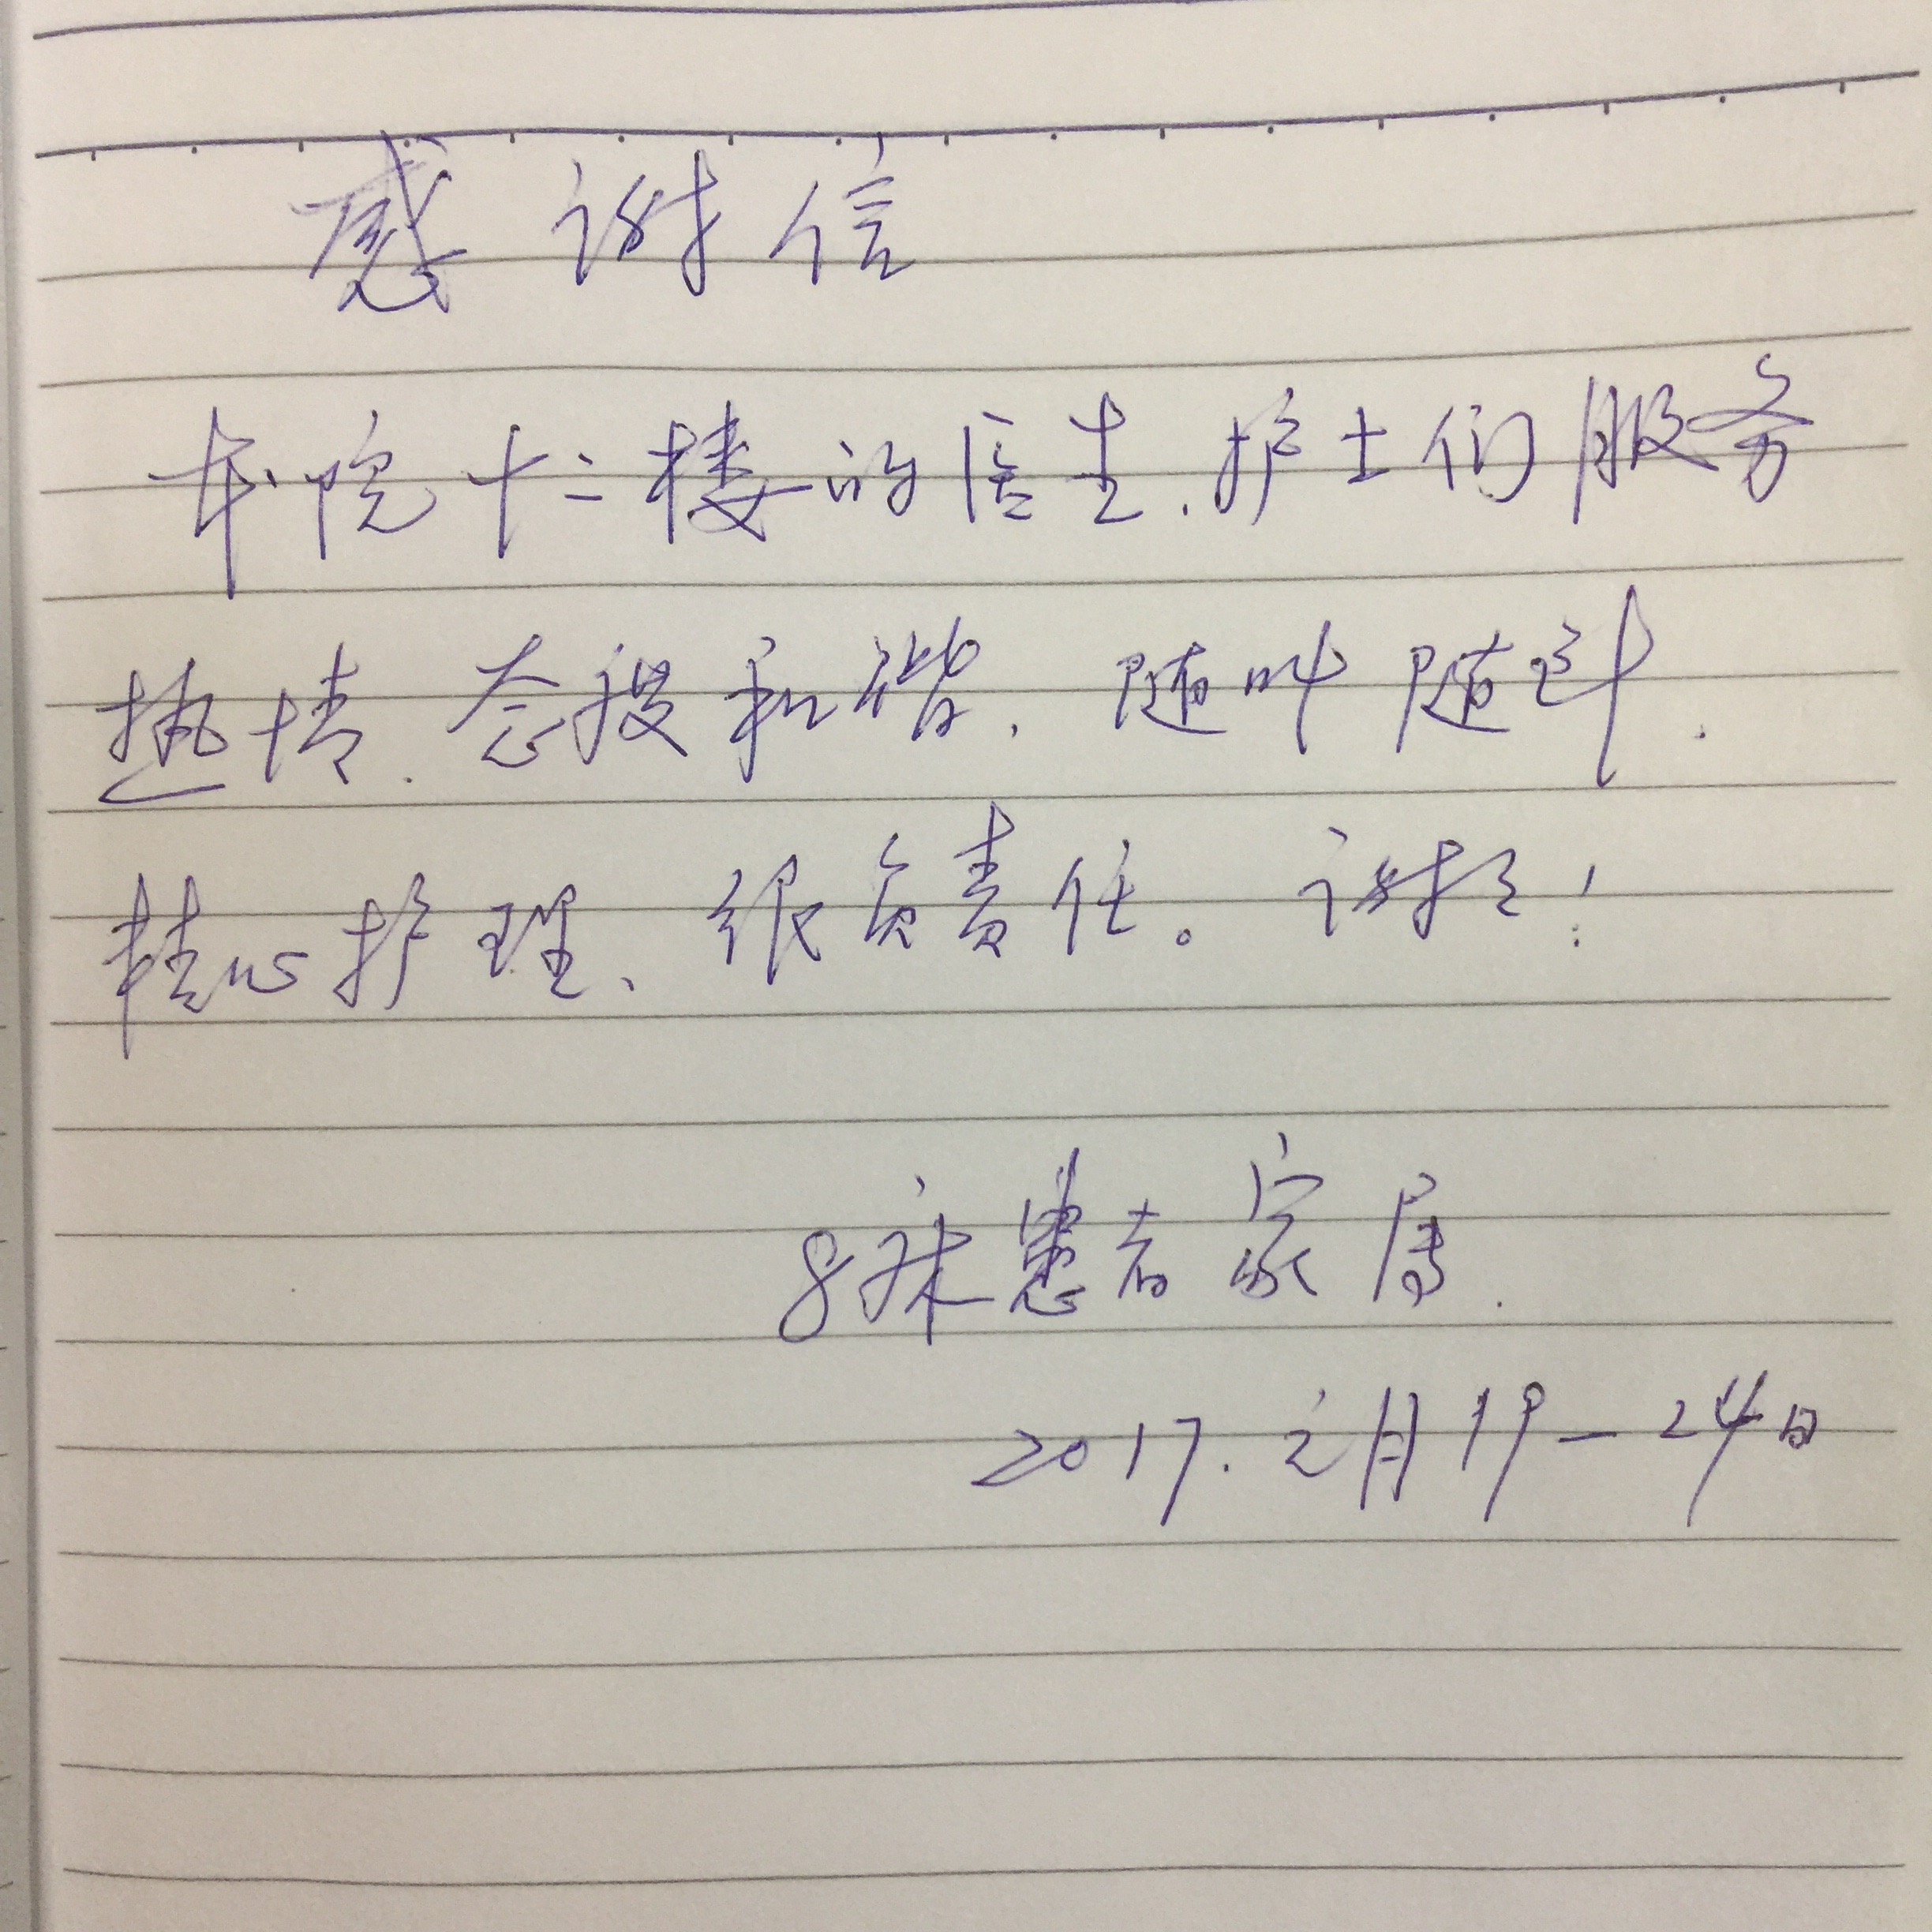 感谢信
本院十二楼的医生、护士们服务
热情、态度和谐、随叫随到、
精心护理、很负责任。谢谢！
8床患者家属.
2017.2月19-24日